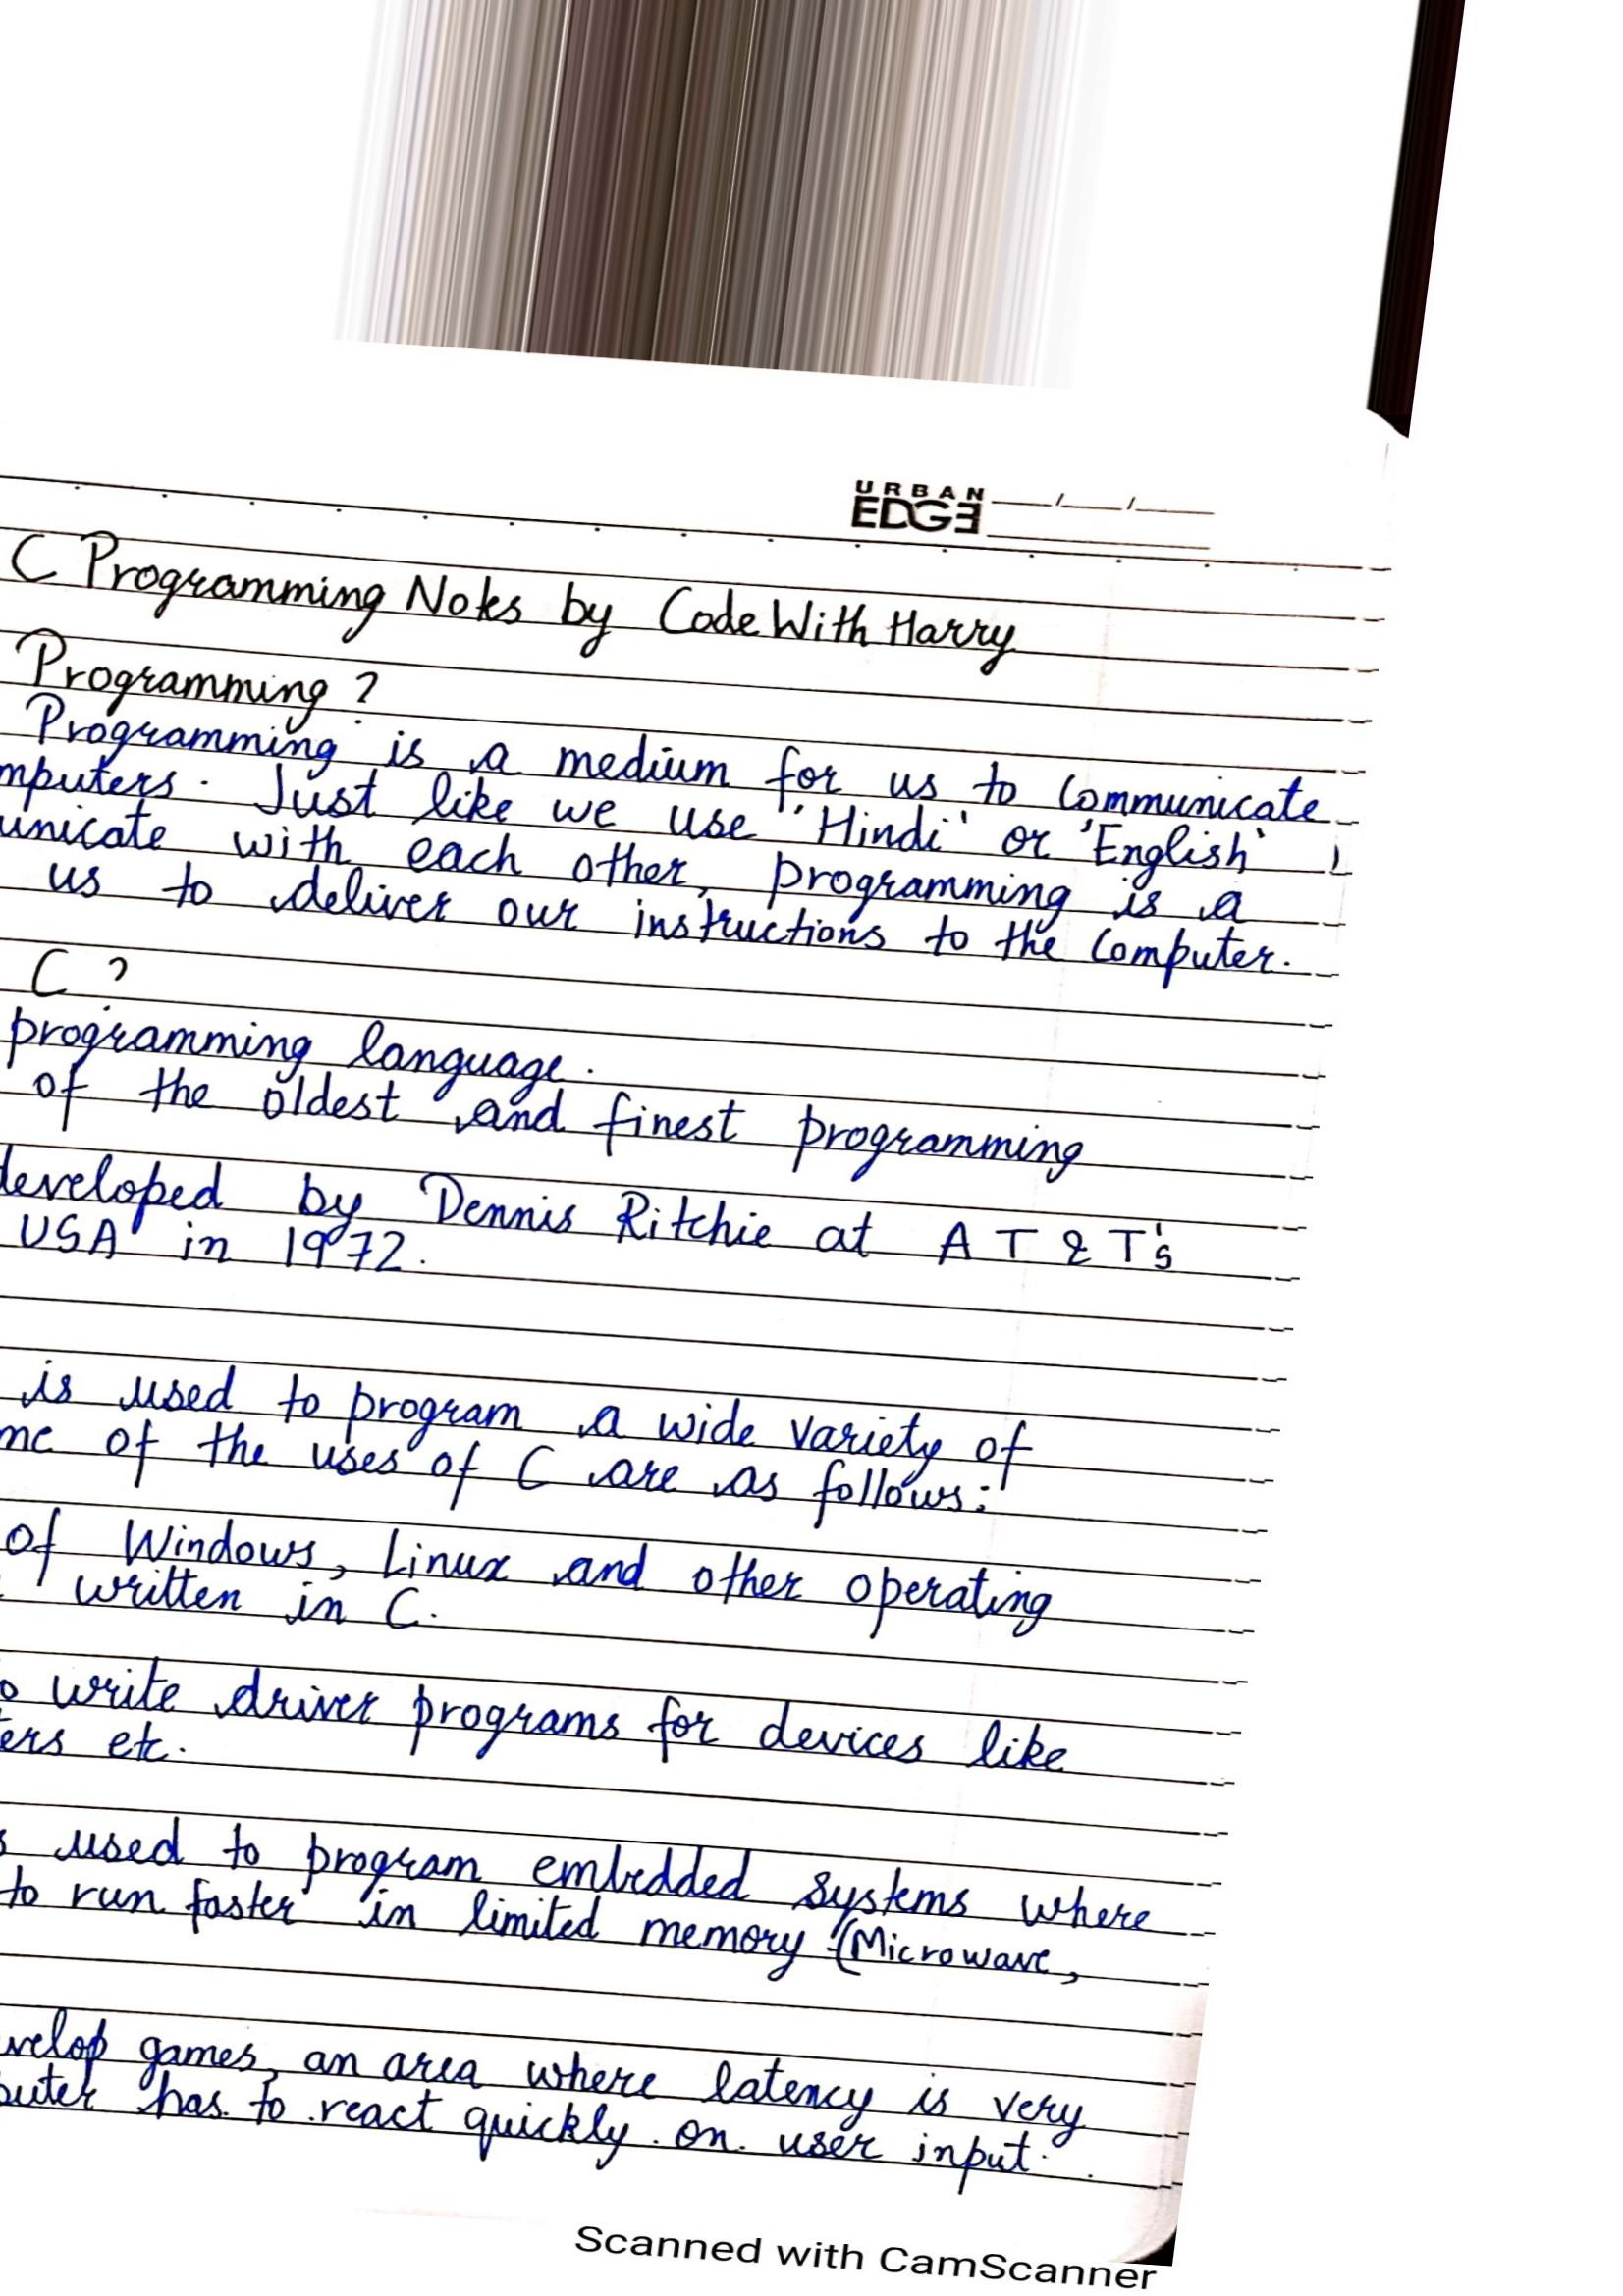 URBAN
EDGE
C Programming Notes by CodeWithHarry
Programming?
Programming is a medium for us to communicate
mputers. Just like we use 'Hindi' or 'English'
unicate with each other, programming is a
us to deliver our instructions to the computer.
C?
programming language.
of the oldest and finest programming
developed by Dennis Ritchie at AT&T's
USA in 1972.
is used to program a wide variety of
me of the uses of C are as follows:
of Windows, Linux and other operating
written in C.
o write driver programs for devices like
ers etc.
s used to program embedded systems where
to run faster in limited memory (Microwave,
velop games, an area where latency is very
puter has to react quickly on user input.
Scanned with CamScanner